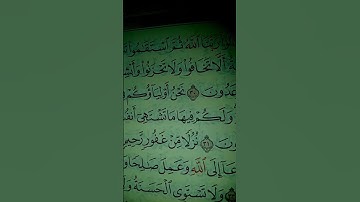 ٱللَّهُ ثُمَّ ٱسْتَقَٰمُوا۟
أَلَّا تَخَافُوا۟ وَلَا تَحْزَنُوا۟
نَحْنُ أَوْلِيَآؤُكُمْ
وَلَكُمْ فِيهَا مَا تَشْتَهِىٓ
نُزُلًا مِّنْ غَفُورٍ رَّحِيمٍ
إِلَى ٱللَّهِ وَعَمِلَ صَٰلِحًا
وَلَا تَسْتَوِى ٱلْحَسَنَةُ